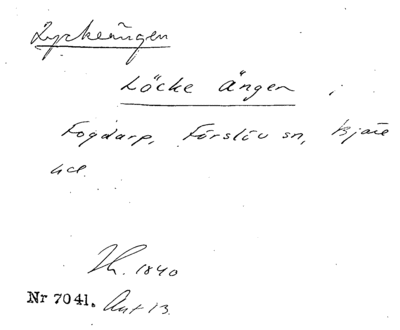 Lyckeängen
Löcke ängen,
Fogdarp, Förslöv sn, Bjäre
hd.
1840
Nr 7041. Ant 13.